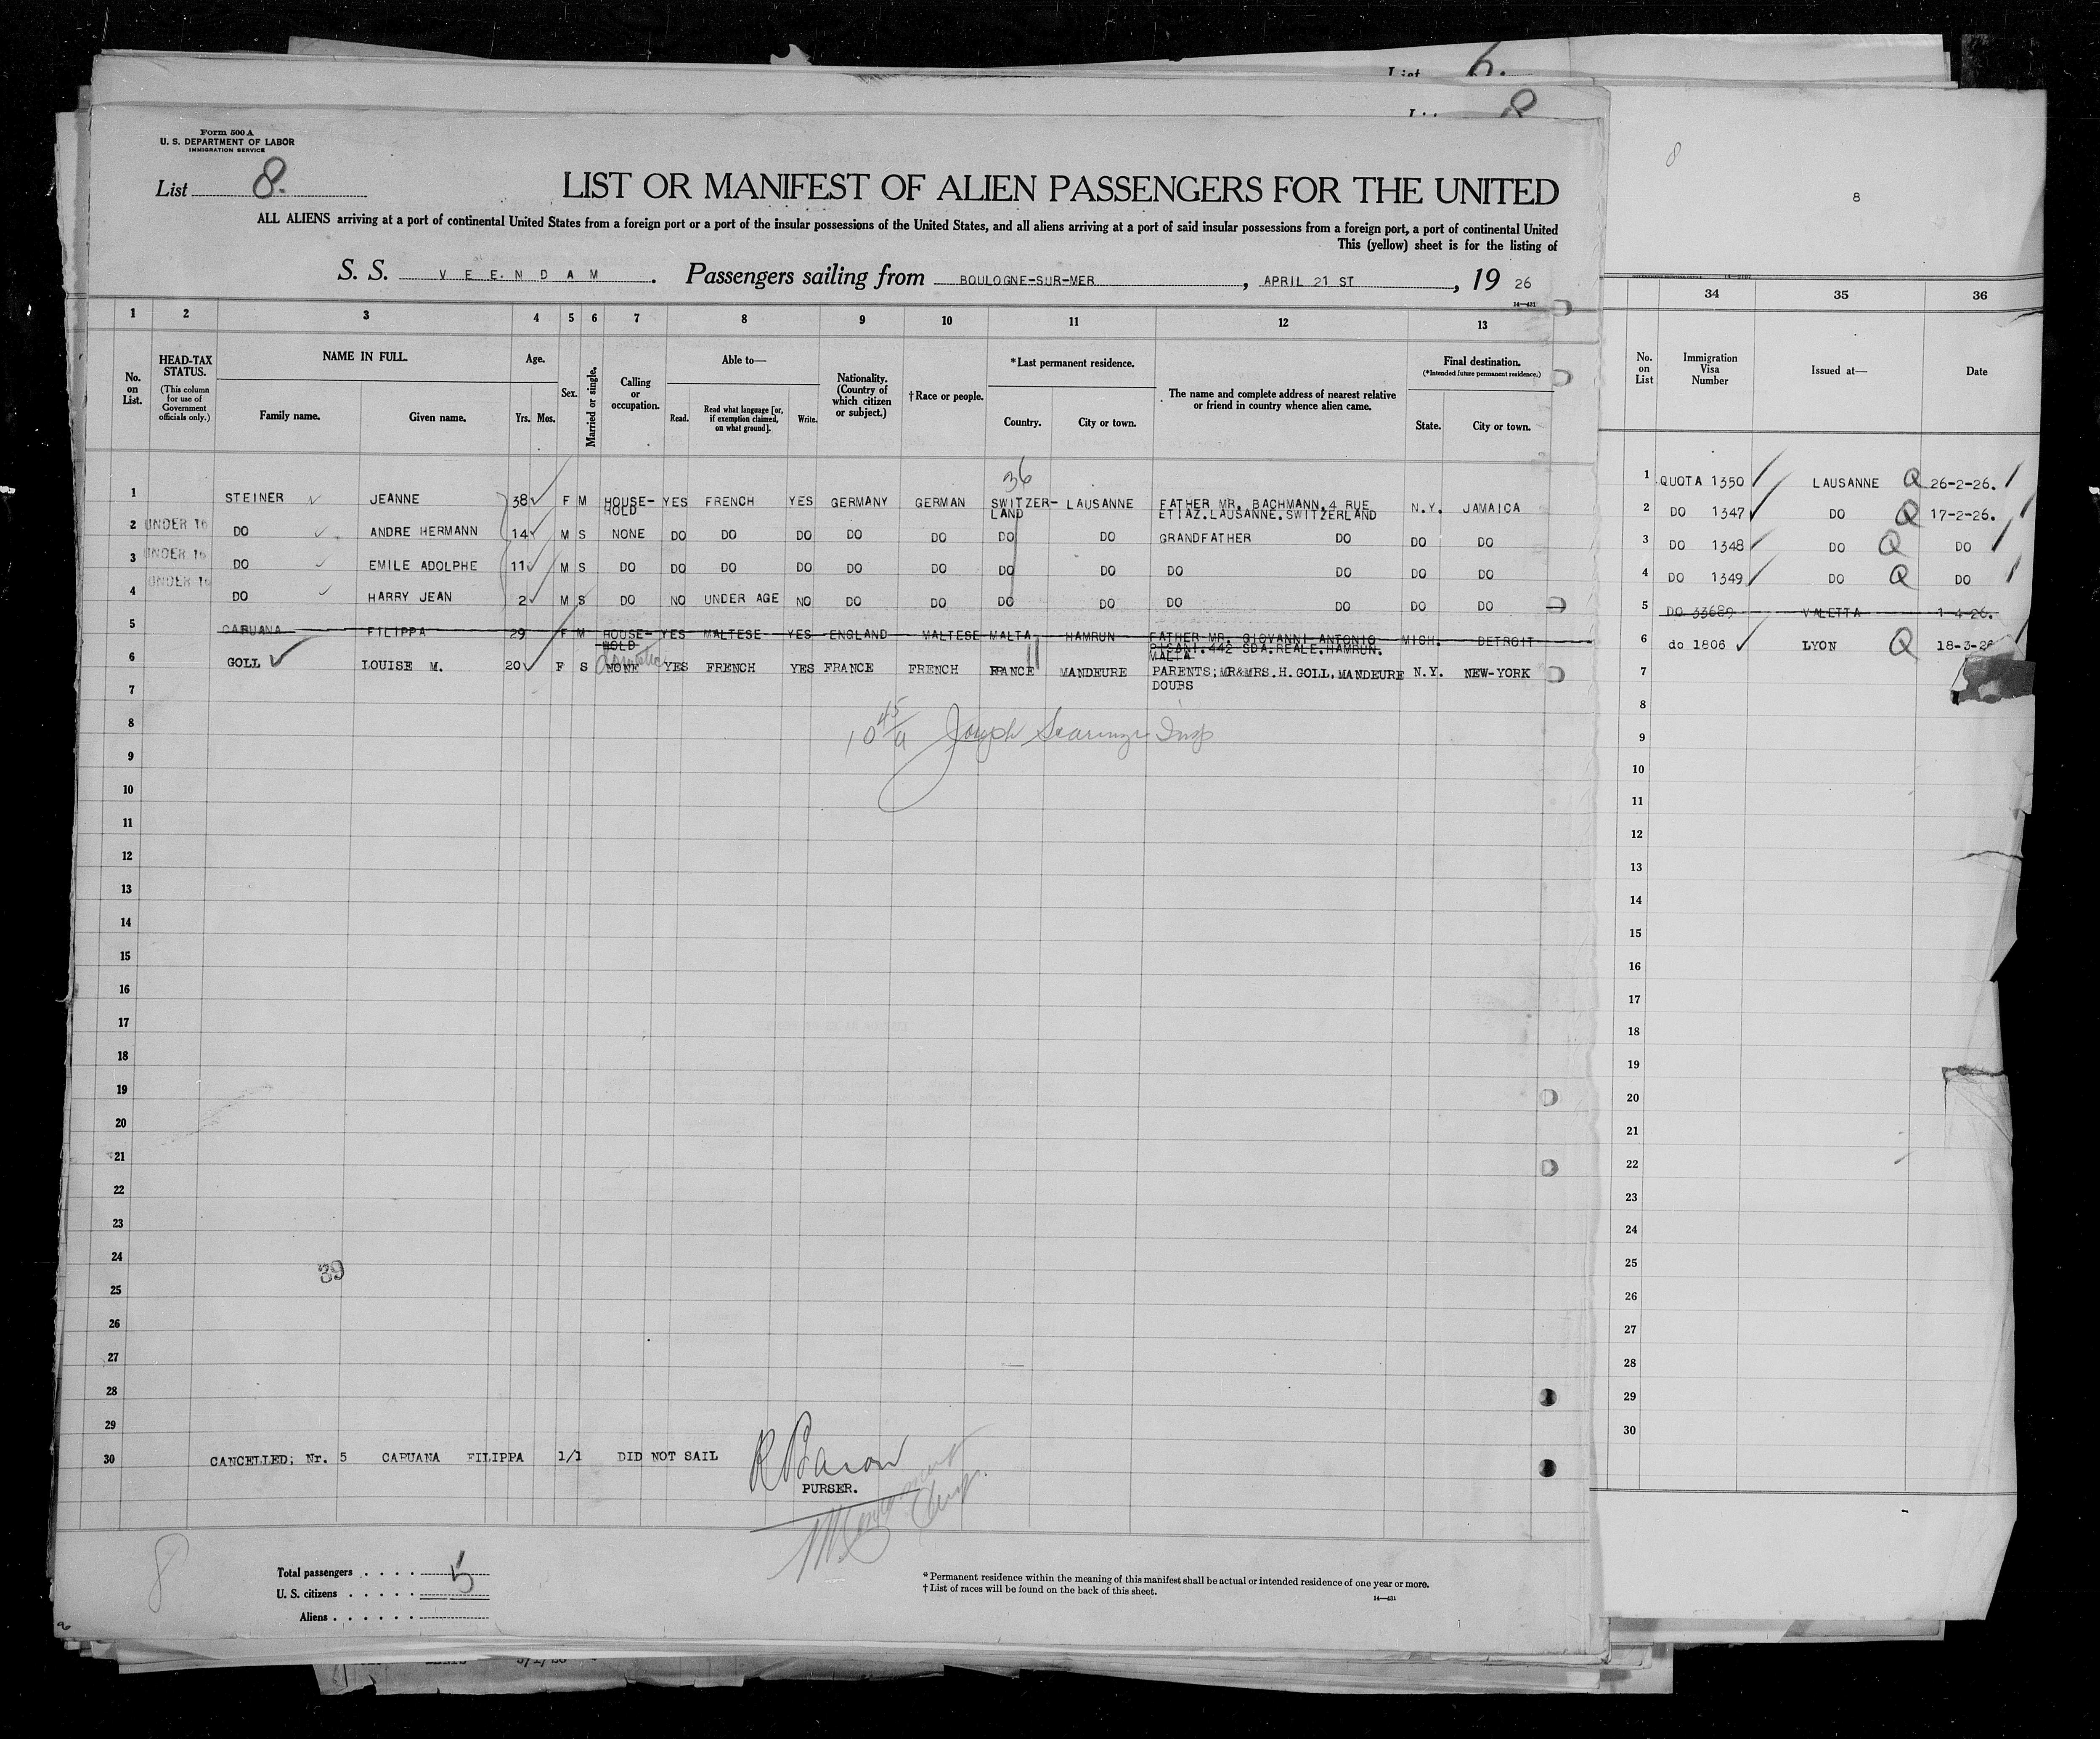 List 6.
8
Form 500 A
U. S. DEPARTMENT OF LABOR
IMMIGRATION SERVICE
List 8.
LIST OR MANIFEST OF ALIEN PASSENGERS FOR THE UNITED
ALL ALIENS arriving at a port of continental United States from a foreign port or a port of the insular possessions of the United States, and all aliens arriving at a port of said insular possessions from a foreign port, a port of continental United
This (yellow) sheet is for the listing of
S. S. VEENDAM. Passengers sailing from BOULOGNE-SUR-MER, APRIL 21 ST, 19 26
14—431
1 2 3 4 5 6 7 8 9 10 11 12 13
No. on List.
HEAD-TAX STATUS. (This column for use of Government officials only.)
NAME IN FULL.
Family name. Given name.
Age.
Yrs. Mos.
Sex.
Married or single.
Calling or occupation.
Able to—
Read. Read what language [or, if exemption claimed, on what ground]. Write.
Nationality. (Country of which citizen or subject.)
†Race or people.
*Last permanent residence.
Country. City or town.
The name and complete address of nearest relative or friend in country whence alien came.
Final destination.
(*Intended future permanent residence.)
State. City or town.
36
1 STEINER JEANNE 38 F M HOUSE-HOLD YES FRENCH YES GERMANY GERMAN SWITZER-LAND LAUSANNE FATHER MR. BACHMANN, 4 RUE ETIAZ.LAUSANNE.SWITZERLAND N.Y. JAMAICA
2 UNDER 16 DO ANDRE HERMANN 14 M S NONE DO DO DO DO DO DO DO GRANDFATHER DO DO DO
3 UNDER 16 DO EMILE ADOLPHE 11 M S DO DO DO DO DO DO DO DO DO DO DO DO
4 UNDER 16 DO HARRY JEAN 2 M S DO NO UNDER AGE NO DO DO DO DO DO DO DO DO
5 CARUANA FILIPPA 29 F M HOUSE-HOLD YES MALTESE YES ENGLAND MALTESE MALTA HAMRUN FATHER MR. GIOVANNI ANTONIO PISANI.442 SDA.REALE.HAMRUN. MALTA MICH. DETROIT
6 GOLL LOUISE M. 20 F S NONE domestic YES FRENCH YES FRANCE FRENCH FRANCE MANDEURE PARENTS; MR&MRS.H.GOLL, MANDEURE DOUBS N.Y. NEW-YORK
7
8
10 45/a Joseph Insp
9
10
11
12
13
14
15
16
17
18
19
20
21
22
23
24
39
25
26
27
28
29
30 CANCELLED; Nr. 5 CARUANA FILIPPA 1/1 DID NOT SAIL
PURSER.
8
Total passengers . . . . 5
U. S. citizens . . . . .
Aliens . . . . . .
*Permanent residence within the meaning of this manifest shall be actual or intended residence of one year or more.
†List of races will be found on the back of this sheet.
14—431
8
8
34 35 36
No. on List
Immigration Visa Number
Issued at—
Date
1 QUOTA 1350 LAUSANNE Q 26-2-26.
2 DO 1347 DO Q 17-2-26.
3 DO 1348 DO Q DO
4 DO 1349 DO Q DO
5 DO 33689 VALETTA 1-4-26.
6 do 1806 LYON Q 18-3-26
7
8
9
10
11
12
13
14
15
16
17
18
19
20
21
22
23
24
25
26
27
28
29
30